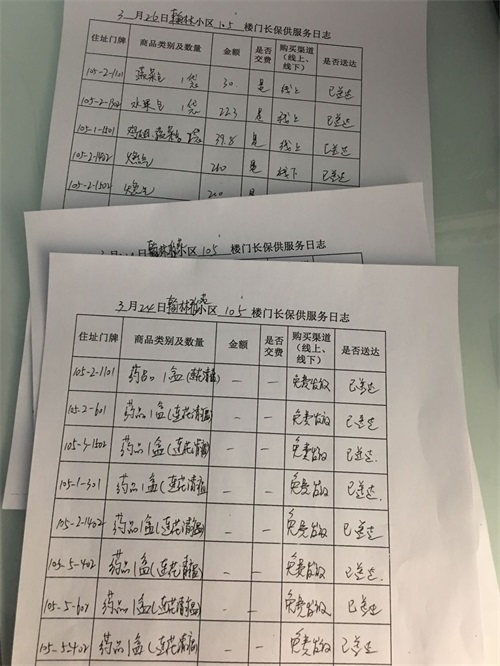 3月26日翰林小区 105 楼门长保供服务日志
住址门牌 商品类别及数量 金额 是否交费 购买渠道（线上、线下） 是否送达
105-2-1101 蔬菜包 1袋 30 是 线上 已送达
水果包 1袋 22.3 是 线上 已送达
105-1-1501 39.8 是 线上 已送达
燃气 200 是 线下 已送达
105-2-1502 燃气 200 是
105 楼门长保供服务日志
3月24日翰林 区 105 楼门长保供服务日志
住址门牌 商品类别及数量 金额 是否交费 购买渠道（线上、线下） 是否送达
105-2-1101 药品1盒(连花清瘟 — — 免费发放 已送达
105-2-601 药品1盒(连花清瘟 — — 免费发放 已送达
105-3-1502 药品1盒(连花清瘟 — — 免费发放 已送达.
105-1-301 药品1盒(连花清瘟 — — 免费发放 已送达.
105-2-1402 药品1盒(连花清瘟 — — 免费发放 已送达
105-5-402 药品1盒(连花清瘟 — — 免费发放 已送达
105-5-602 药品1盒(连花清瘟 — — 免费发放 已送达
药品1盒(连花清瘟 — — 免费发放 已送达